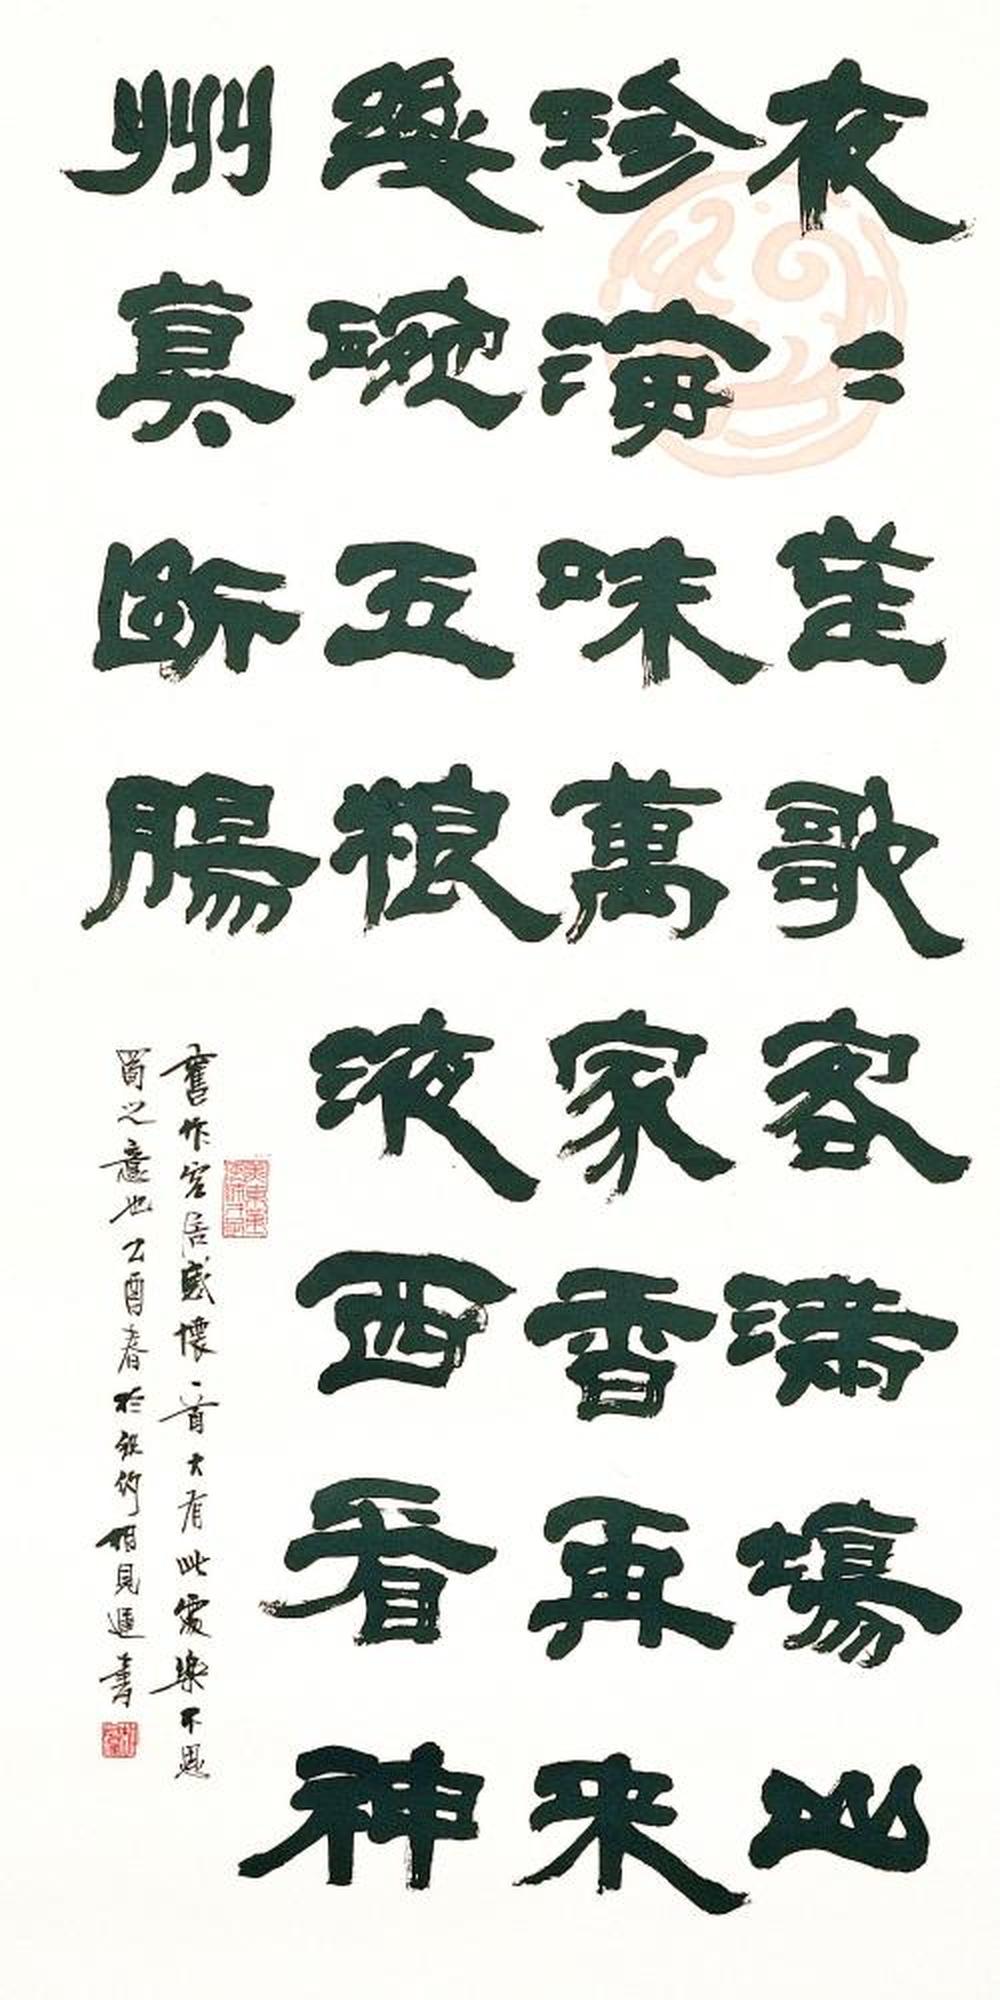 夜々笙歌客满場山
珍海味萬家香再来
幾碗五粮液西看神
州莫断腸
舊作客居感懷一首大有此處樂不思
蜀之意也乙酉春於纽约相見遲書